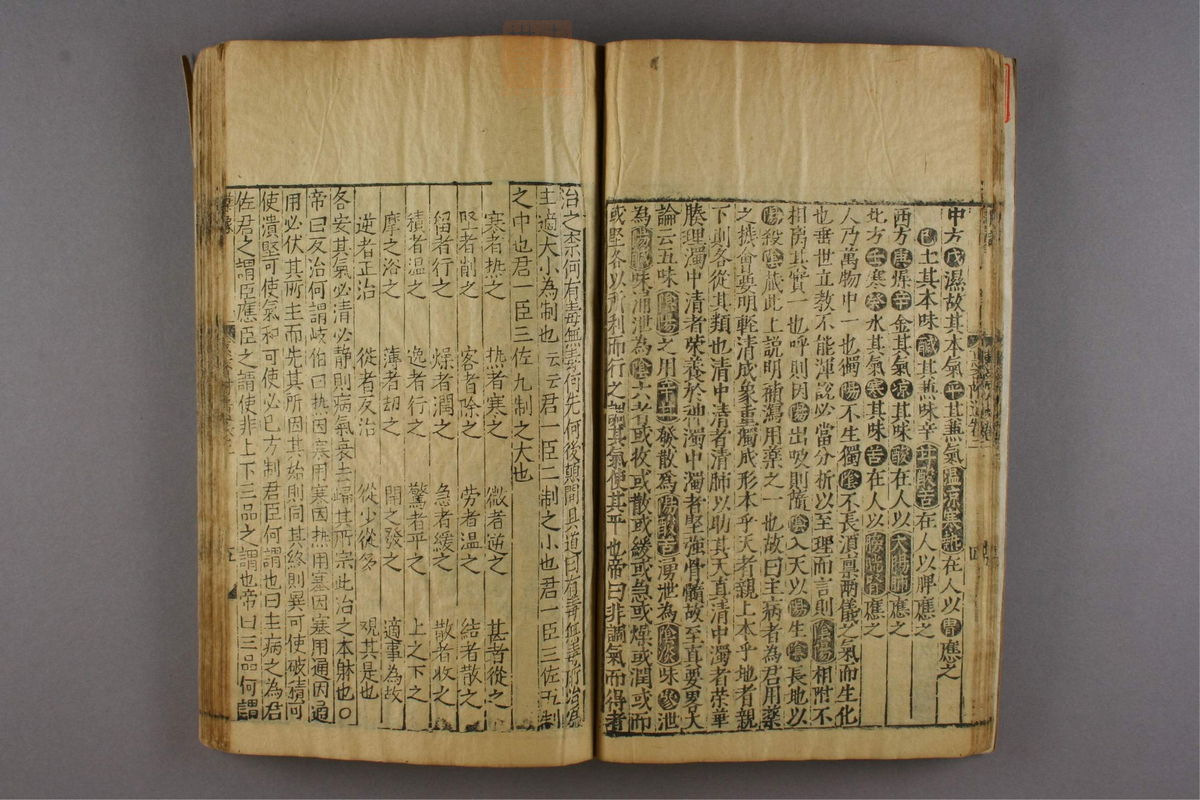 中方戊濕故其本氣平其兼氣溫凉寒熱在人以胃應之
己土其本味醎其兼味辛甘酸苦在人以脾應之
西方庚燥辛金其氣凉其味酸在人以大腸肺應之
北方壬寒癸水其氣寒其味苦在人以膀胱腎應之
人乃萬物中一也獨陽不生獨陰不長湏禀兩儀之氣而生化
也垂世立教不能渾說必當分析以至理而言則陰陽相附不
相離其實一也呼則因陽出吸則隨陰入天以陽生陰長地以
陽殺陰藏此上說明補瀉用藥之一也故曰主病者為君用藥
之機會要明輕清成象重濁成形本乎天者親上本乎地者親
下則各從其類也清中清者清肺以助其天真清中濁者荣華
腠理濁中清者荣養於神濁中濁者堅強骨髓故至真要畧大
論云五味陰陽之用辛甘發散為陽酸苦湧泄為陰淡味滲泄
為陽醎味涌泄為陰六者或收或散或緩或急或燥或潤或耎
或堅各以所利而行之調其氣使其平也帝曰非調氣而得者
治之柰何有毒無毒何先何後願聞其道曰有毒無毒所治為
主適大小為制也云云君一臣二制之小也君一臣三佐五制
之中也君一臣三佐九制之大也
寒者热之 热者寒之 微者逆之 甚者從之
堅者削之 客者除之 劳者温之 結者散之
留者行之 燥者潤之 急者緩之 散者收之
積者温之 逸者行之 驚者平之 上之下之
摩之浴之 薄者刼之 開之發之 適事為故
逆者正治 從者反治 從少從多 覌其是也
各安其氣必清必静則病氣衰去歸其所宗此治之本躰也〇
帝曰反治何謂歧伯曰热因寒用寒因热用塞因塞用通因通
用必伏其所主而先其所因其始則同其終則異可使破積可
使潰堅可使氣和可使必已方制君臣何謂也曰主病之為君
佐君之謂臣應臣之謂使非上下三品之謂也帝曰三品何謂